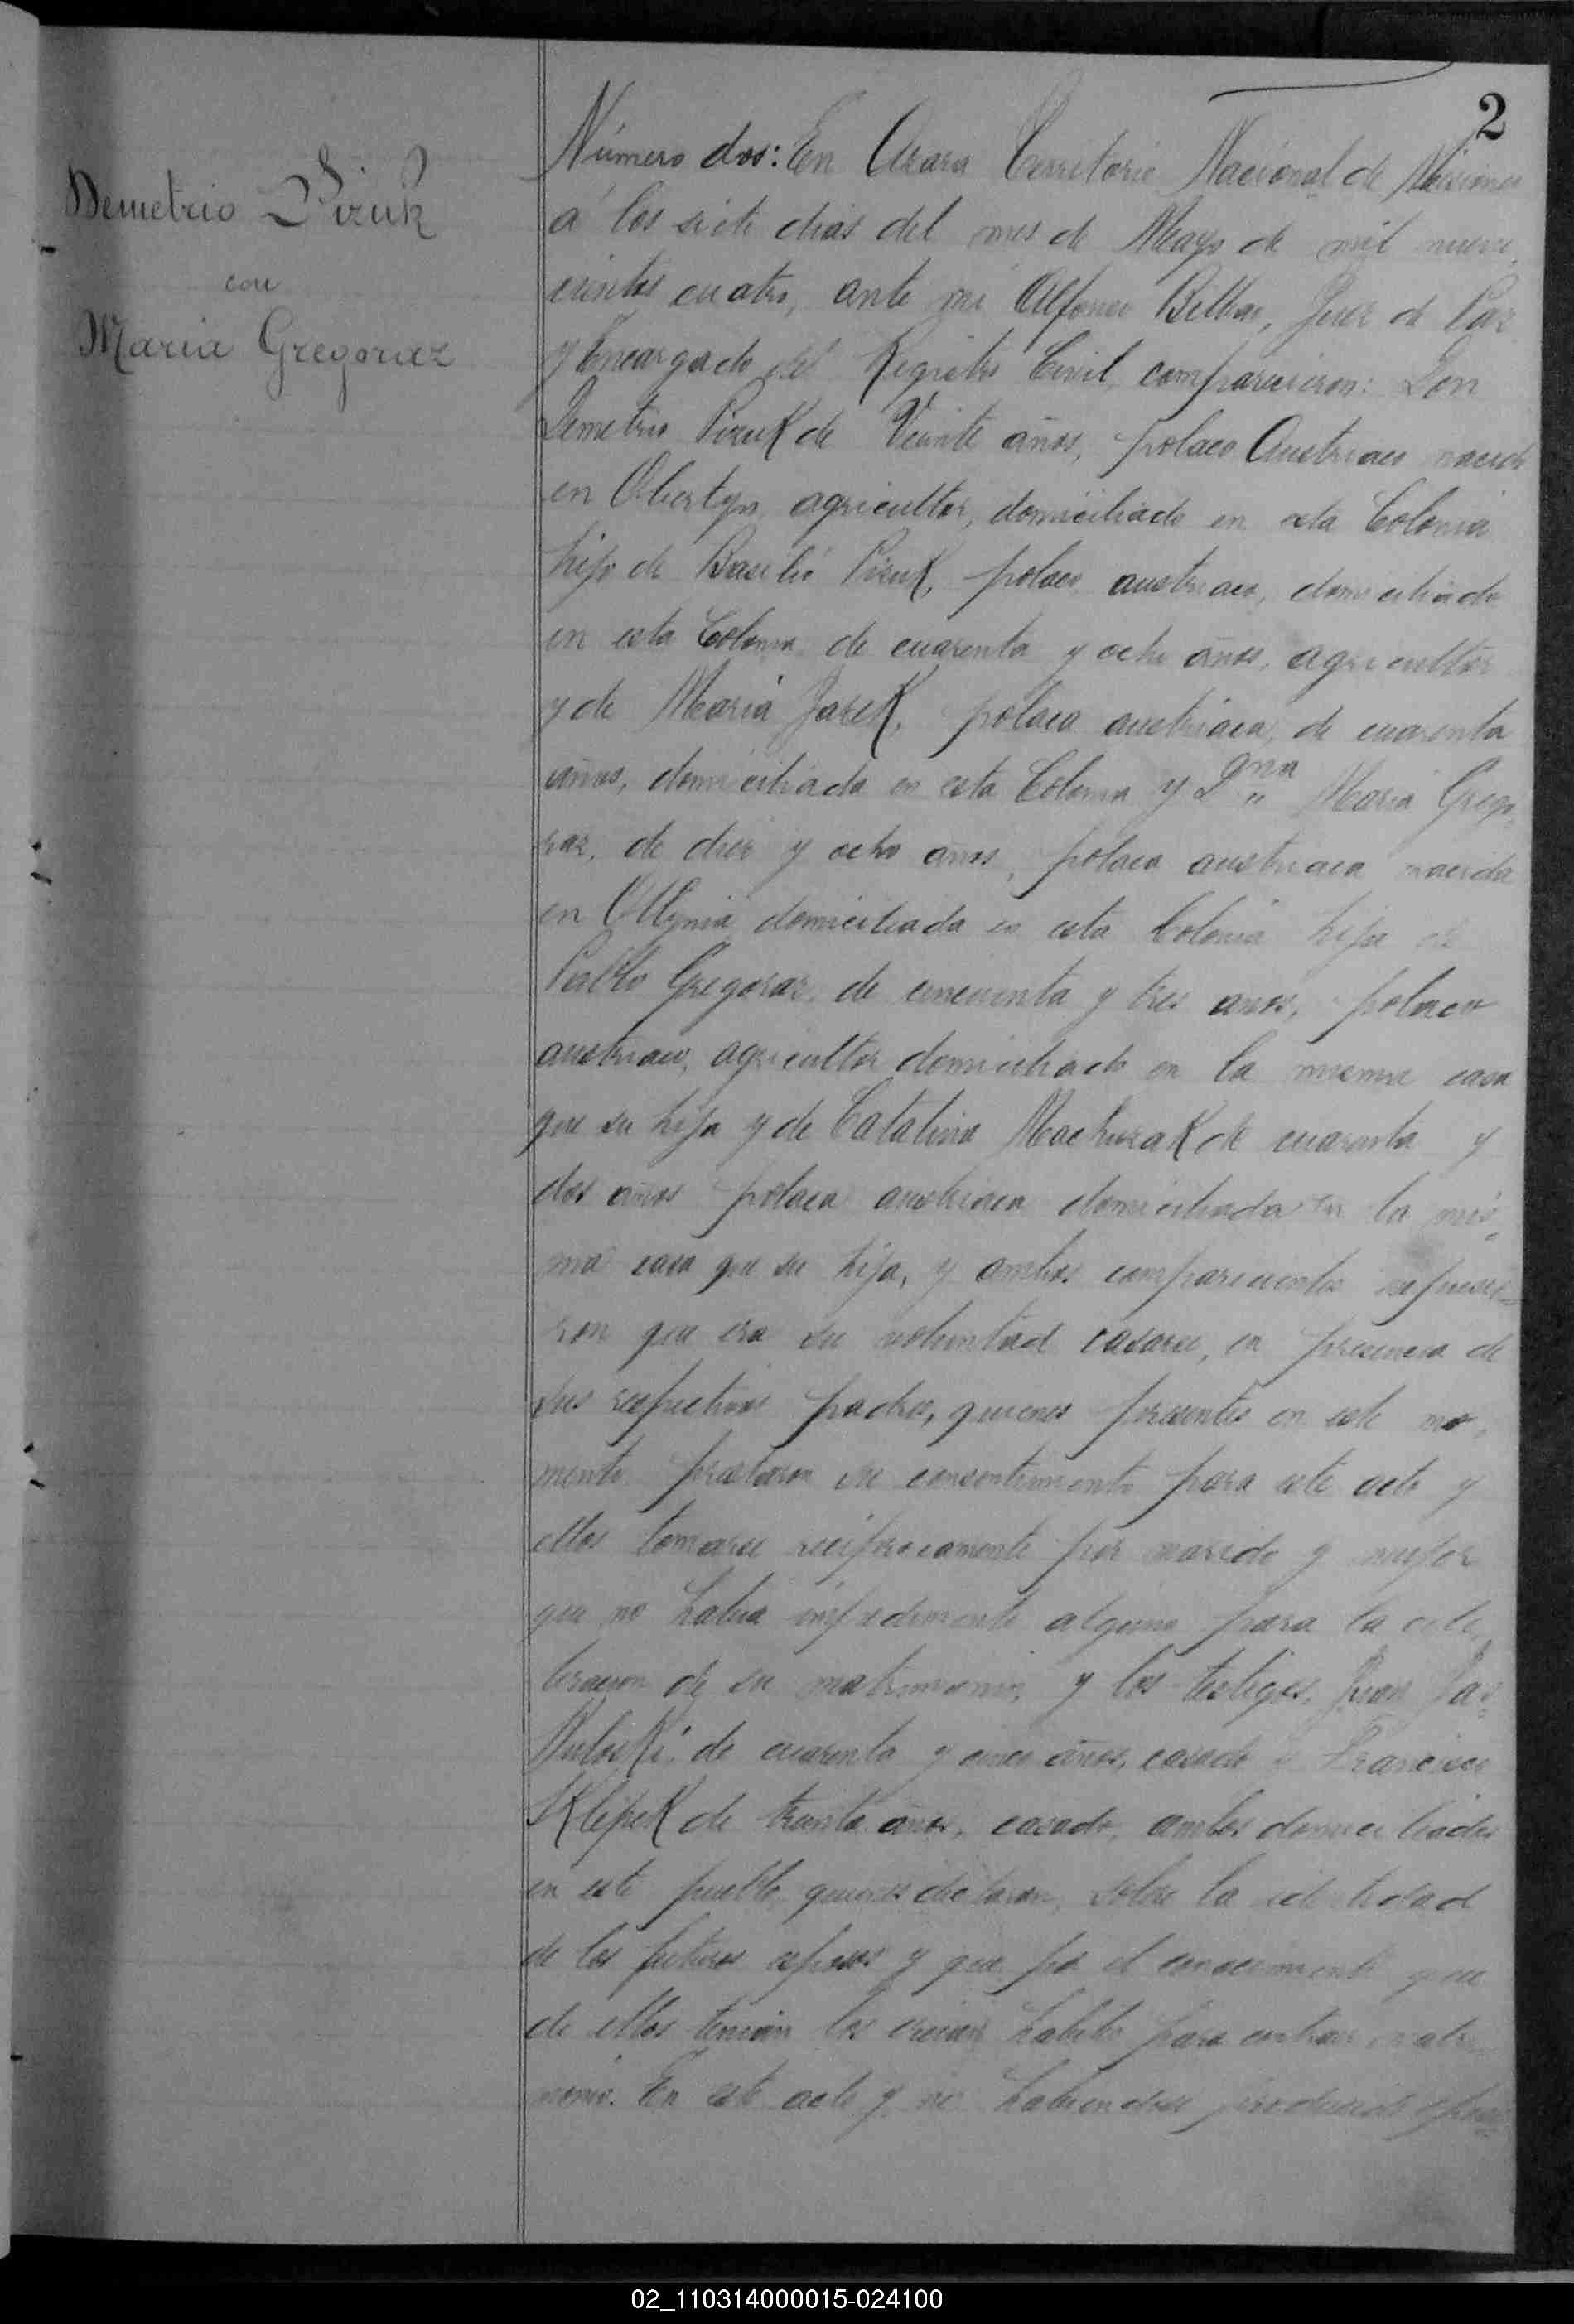 2
Demetrio Pizuk
con
Maria Gregoraz
Número dos: En Azara Territorio Nacional de Misiones
á los siete dias del mes de Mayo de mil nueve
cientos cuatro, ante mi Alfonso Bilbao, Juez de Paz
y Encargado del Registro Civil, comparecieron: Don
Demetrio Pizuk de Veinte años, polaco Austriaco nacido
en Obertyn, agricultor, domiciliado en esta Colonia
hijo de Basilio Pizuk, polaco, austriaco, domiciliado
en esta Colonia de cuarenta y ocho años, agricultor
y de Maria Jazek, polaca austriaca, de cuarenta
años, domiciliada en esta Colonia y Dña Maria Grego
raz, de diez y ocho años, polaca austriaca nacida
en Ottynia domiciliada en esta Colonia hija de
Pablo Gregoraz, de cincuenta y tres años, polaco
austriaco, agricultor domiciliado en la misma casa
que su hija y de Catalina Machurak de cuarenta y
dos años polaca austriaca domiciliada en la mis-
ma casa que su hija, y ambos comparecientes expusie-
ron que era su voluntad casarse, en presencia de
sus respectivos padres, quienes presentes en este mo-
mento prestaron su consentimiento para este acto y
ellos tomarse reciprocamente por marido y mujer
que no habia impedimento alguno para la cele
bracion de su matrimonio, y los testigos, Juan Jas-
kuloski de cuarenta y cinco años, casado y Francisco
Sklepek de treinta años, casado, ambos domiciliados
en este pueblo, quienes declararon, sobre la identidad
de los futuros esposos y que por el conocimiento que
de ellos tenian los creian habiles para contraer matri
monio. En este acto y no habiendose producido oposi
02_110314000015-024100